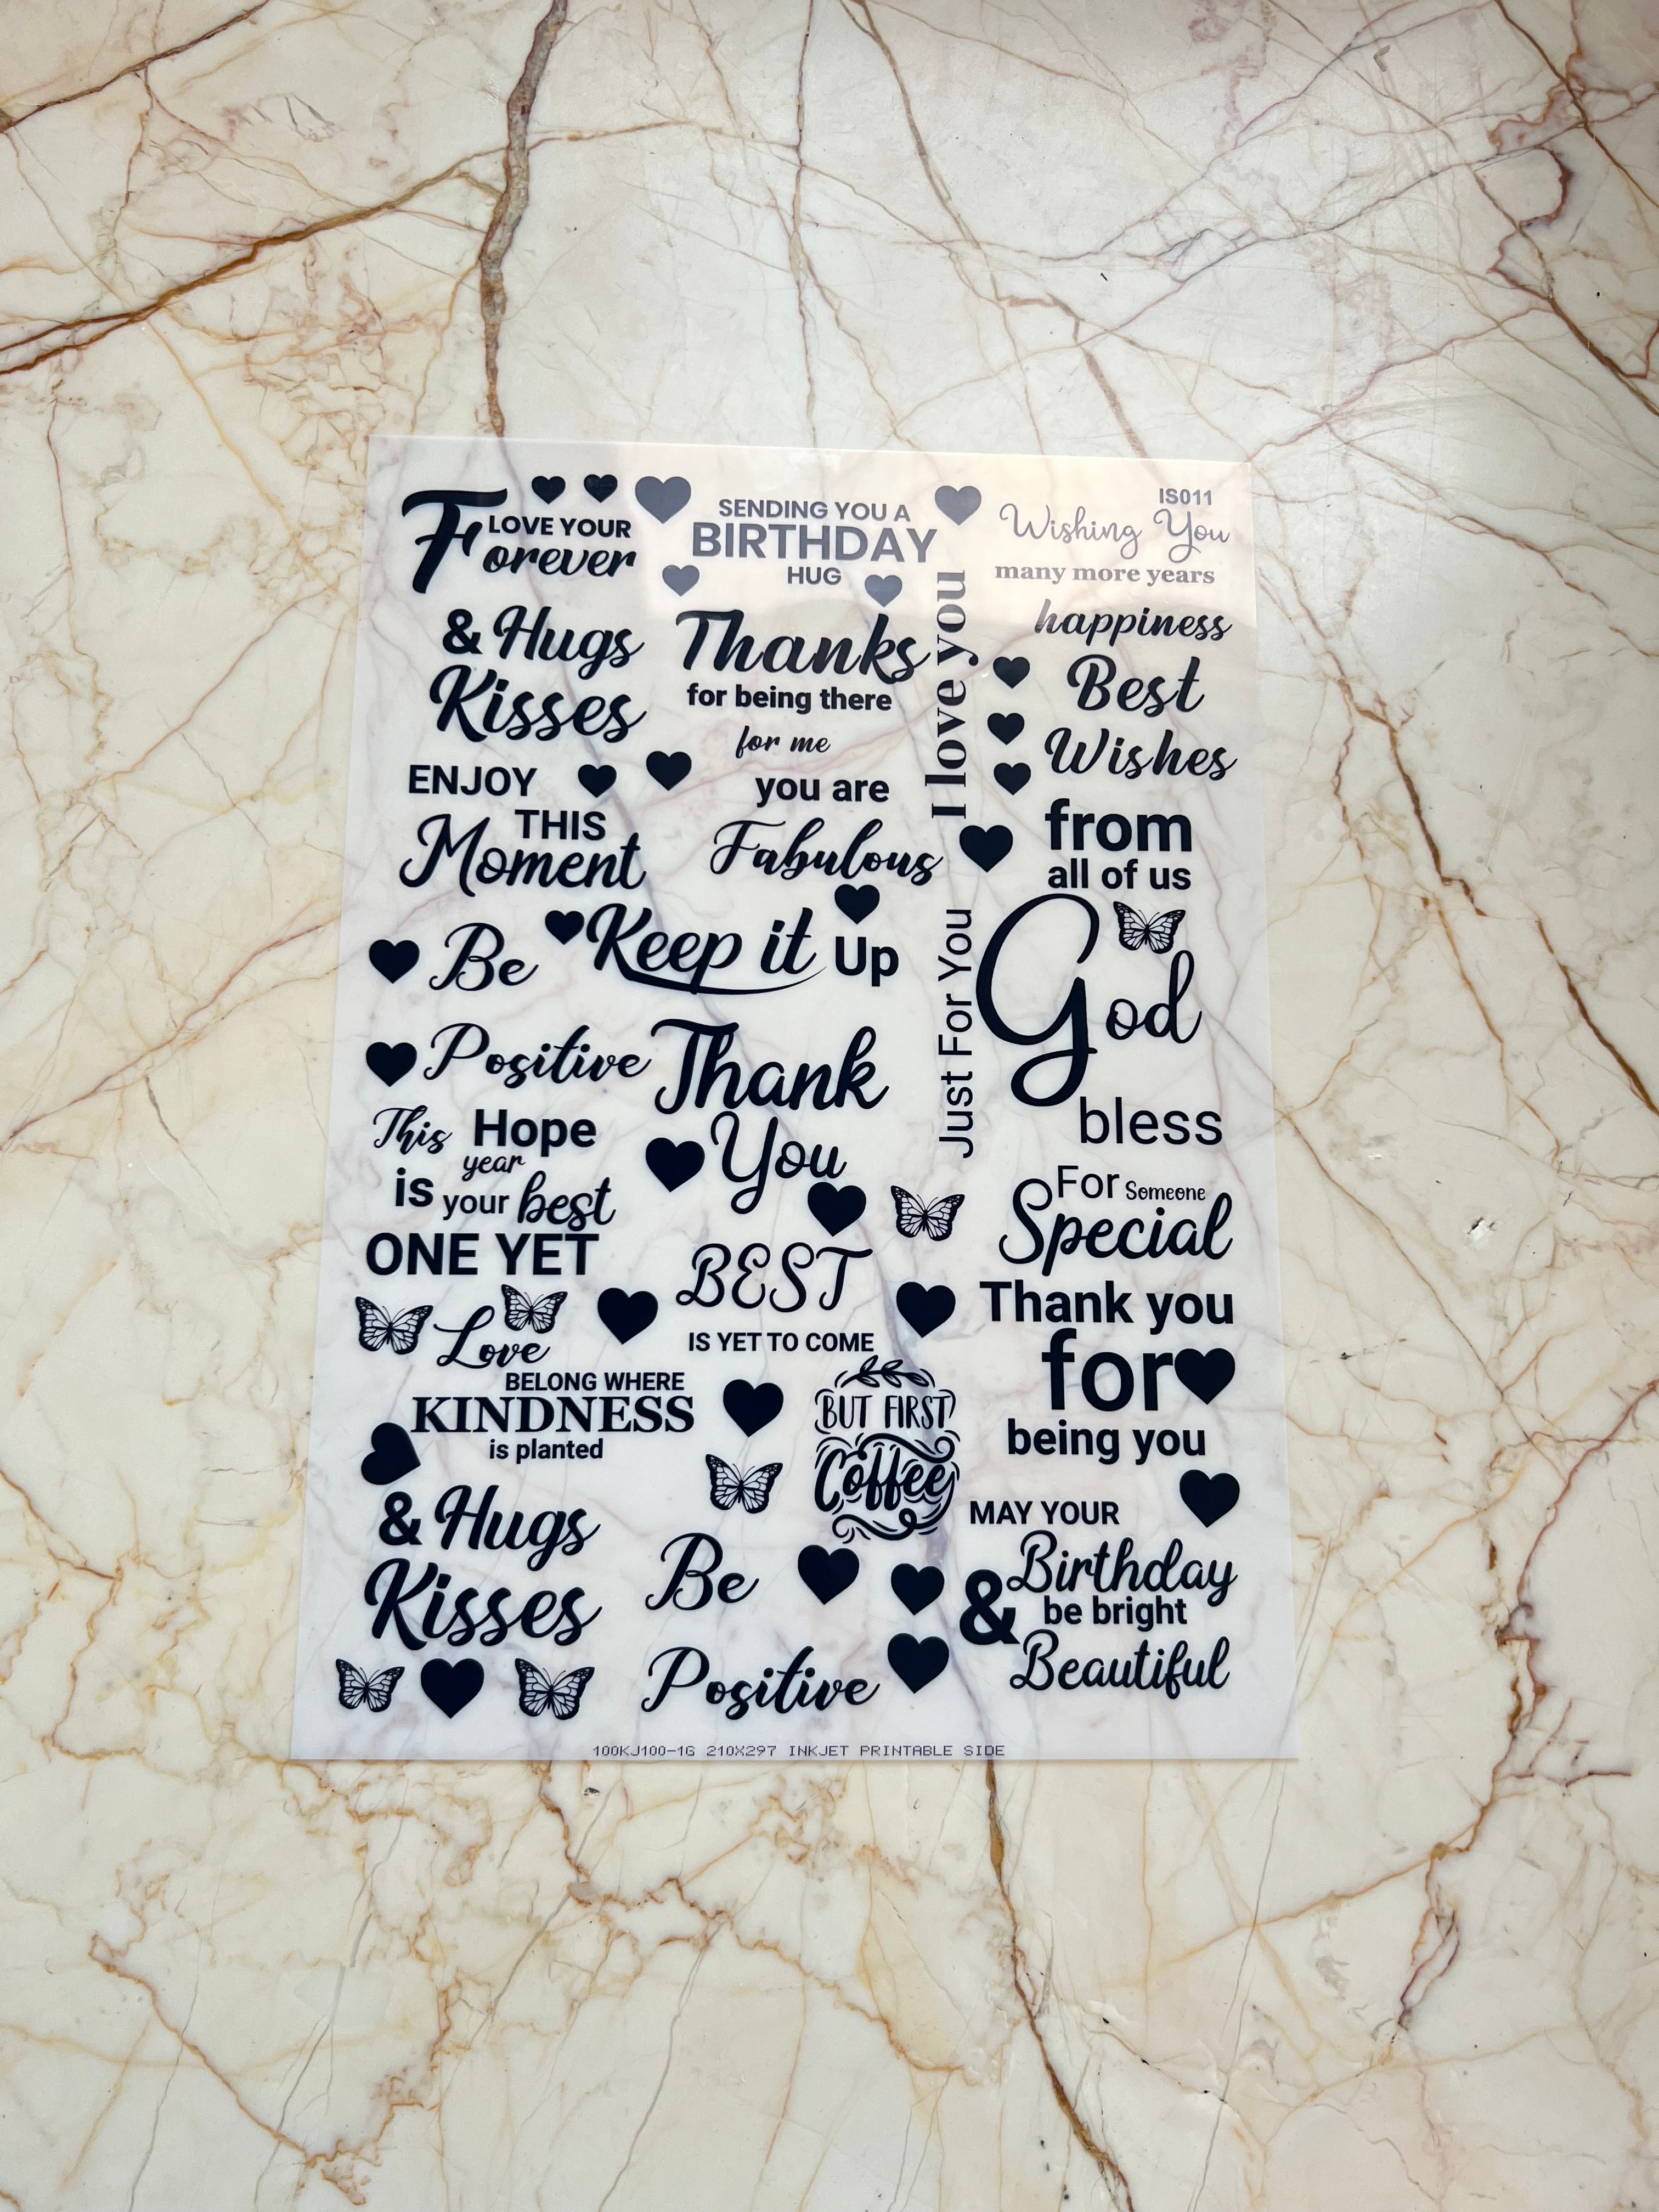 LOVE YOUR
Forever
& Hugs
Kisses
ENJOY
THIS
Moment
Be
Positive
This Hope
year
is your best
ONE YET
Love
BELONG WHERE
KINDNESS
is planted
& Hugs
Kisses
SENDING YOU A
BIRTHDAY
HUG
Thanks
for being there
for me
you are
Fabulous
Keep it Up
Thank
You
BEST
IS YET TO COME
BUT FIRST
Coffee
Be
Positive
I love you
Just For You
IS011
Wishing You
many more years
happiness
Best
Wishes
from
all of us
God
bless
For Someone
Special
Thank you
for
being you
MAY YOUR
Birthday
& be bright
Beautiful
100KJ100-1G 210X297 INKJET PRINTABLE SIDE